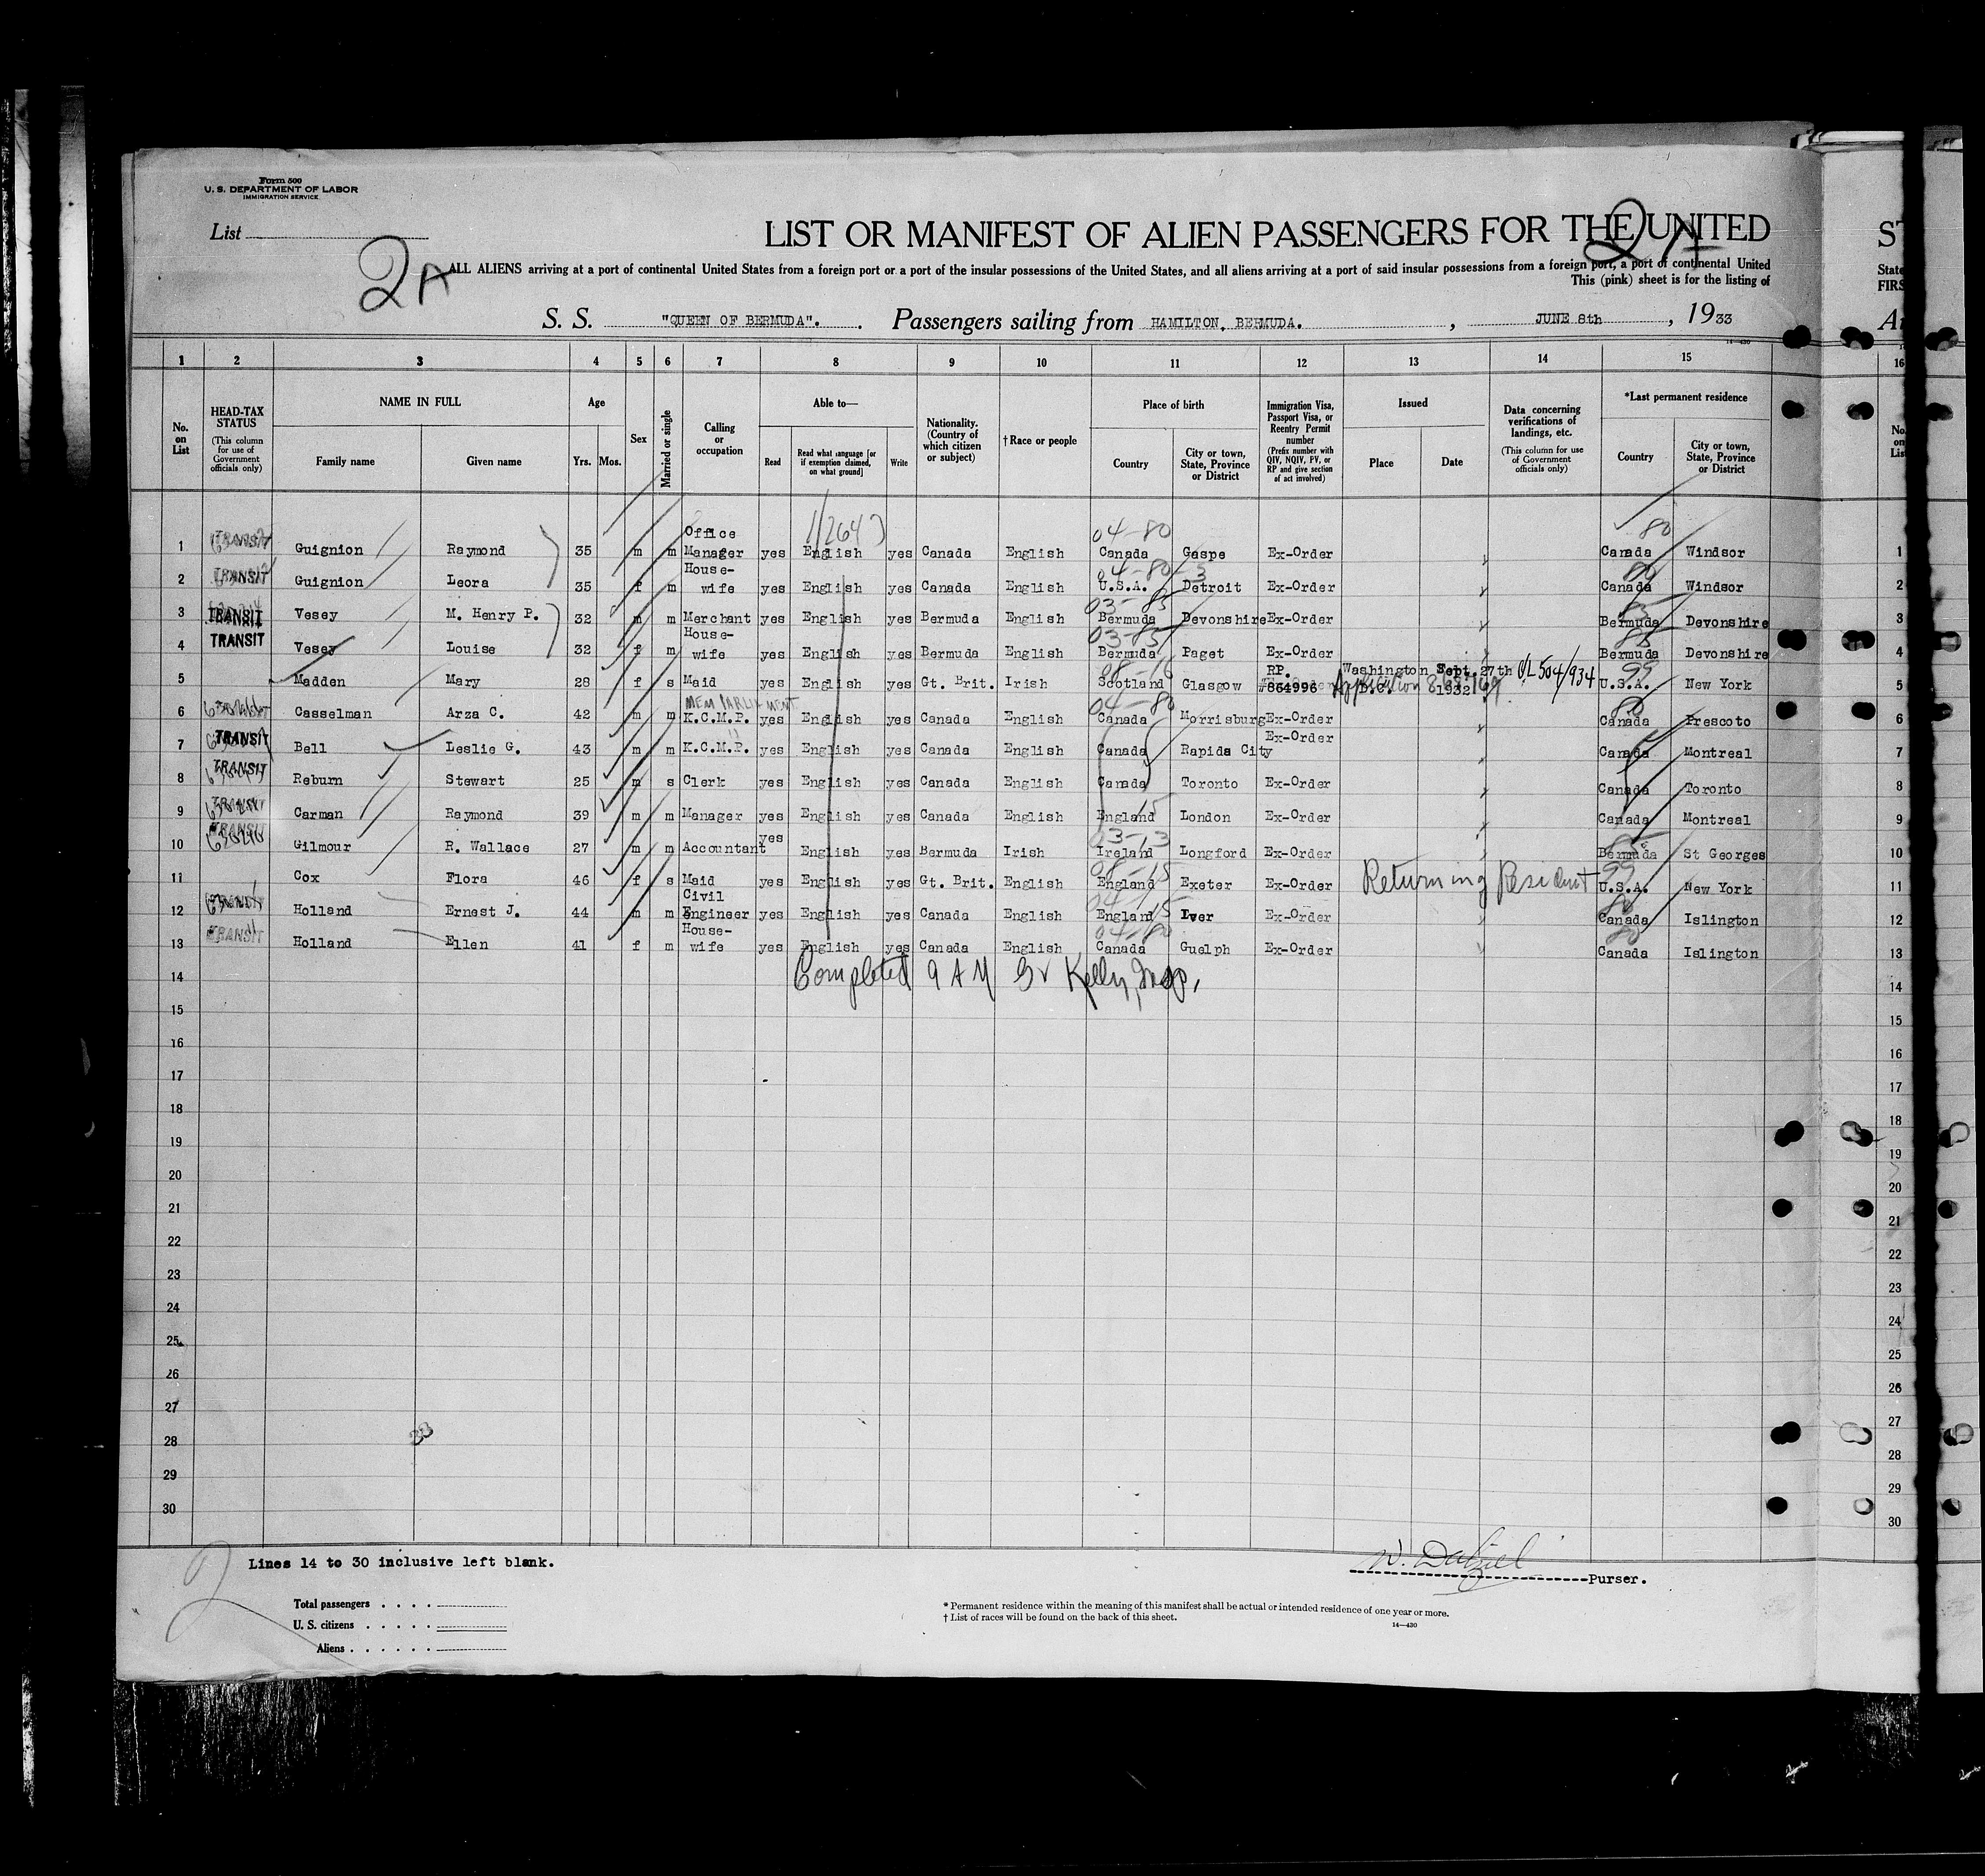 Form 500
U. S. DEPARTMENT OF LABOR
IMMIGRATION SERVICE
List
2A
LIST OR MANIFEST OF ALIEN PASSENGERS FOR THE UNITED
2A
ST
ALL ALIENS arriving at a port of continental United States from a foreign port or a port of the insular possessions of the United States, and all aliens arriving at a port of said insular possessions from a foreign port, a port of continental United
State
This (pink) sheet is for the listing of
FIRS
S. S. "QUEEN OF BERMUDA". Passengers sailing from HAMILTON, BERMUDA. , JUNE 8th , 1933
14—430
1 2 3 4 5 6 7 8 9 10 11 12 13 14 15 16
No. on List
HEAD-TAX STATUS (This column for use of Government officials only)
NAME IN FULL Family name Given name
Age Yrs. Mos.
Sex
Married or single
Calling or occupation
Able to— Read Read what language [or if exemption claimed, on what ground] Write
Nationality. (Country of which citizen or subject)
† Race or people
Place of birth Country City or town, State, Province or District
Immigration Visa, Passport Visa, or Reentry Permit number (Prefix number with QIV, NQIV, PV, or RP and give section of act involved)
Issued Place Date
Data concerning verifications of landings, etc. (This column for use of Government officials only)
*Last permanent residence Country City or town, State, Province or District
1 TRANSIT Guignion Raymond 35 m m Office Manager yes English yes Canada English 04-80 Canada Gaspe Ex-Order 80 Canada Windsor 1
2 TRANSIT Guignion Leora 35 f m House-wife yes English yes Canada English 04-80-3 U.S.A. Detroit Ex-Order 80 Canada Windsor 2
3 TRANSIT Vesey M. Henry P. 32 m m Merchant yes English yes Bermuda English 03-85 Bermuda Devonshire Ex-Order 85 Bermuda Devonshire 3
4 TRANSIT Vesey Louise 32 f m House-wife yes English yes Bermuda English 03-85 Bermuda Paget Ex-Order 85 Bermuda Devonshire 4
5 Madden Mary 28 f s Maid yes English yes Gt. Brit. Irish 08-16 Scotland Glasgow RP. #864996 Washington D.C. Sept. 27th 1932 Application VL 504/934 99 U.S.A. New York 5
6 Casselman Arza C. 42 m m MEM PARLIAMENT K.C.M.P. yes English yes Canada English 04-80 Canada Morrisburg Ex-Order 80 Canada Prescoto 6
7 TRANSIT Bell Leslie G. 43 m m K.C.M.P. yes English yes Canada English Canada Rapids City Ex-Order Canada Montreal 7
8 TRANSIT Reburn Stewart 25 m s Clerk yes English yes Canada English Canada Toronto Ex-Order Canada Toronto 8
9 TRANSIT Carman Raymond 39 m m Manager yes English yes Canada English 15 England London Ex-Order Canada Montreal 9
10 TRANSIT Gilmour R. Wallace 27 m m Accountant yes English yes Bermuda Irish 03-13 Ireland Longford Ex-Order 85 Bermuda St Georges 10
11 Cox Flora 46 f s Maid yes English yes Gt. Brit. English 08-15 England Exeter Ex-Order Returning Resident 99 U.S.A. New York 11
12 Holland Ernest J. 44 m m Civil Engineer yes English yes Canada English 04-15 England Iver Ex-Order 80 Canada Islington 12
13 TRANSIT Holland Ellen 41 f m House-wife yes English yes Canada English 04-80 Canada Guelph Ex-Order 80 Canada Islington 13
14 Completed 9 AM Kelly, Insp. 14
15 15
16 16
17 17
18 18
19 19
20 20
21 21
22 22
23 23
24 24
25 25
26 26
27 27
28 33 28
29 29
30 30
Lines 14 to 30 inclusive left blank.
W. Dalziel Purser.
Total passengers
U. S. citizens
Aliens
* Permanent residence within the meaning of this manifest shall be actual or intended residence of one year or more.
† List of races will be found on the back of this sheet.
14—430